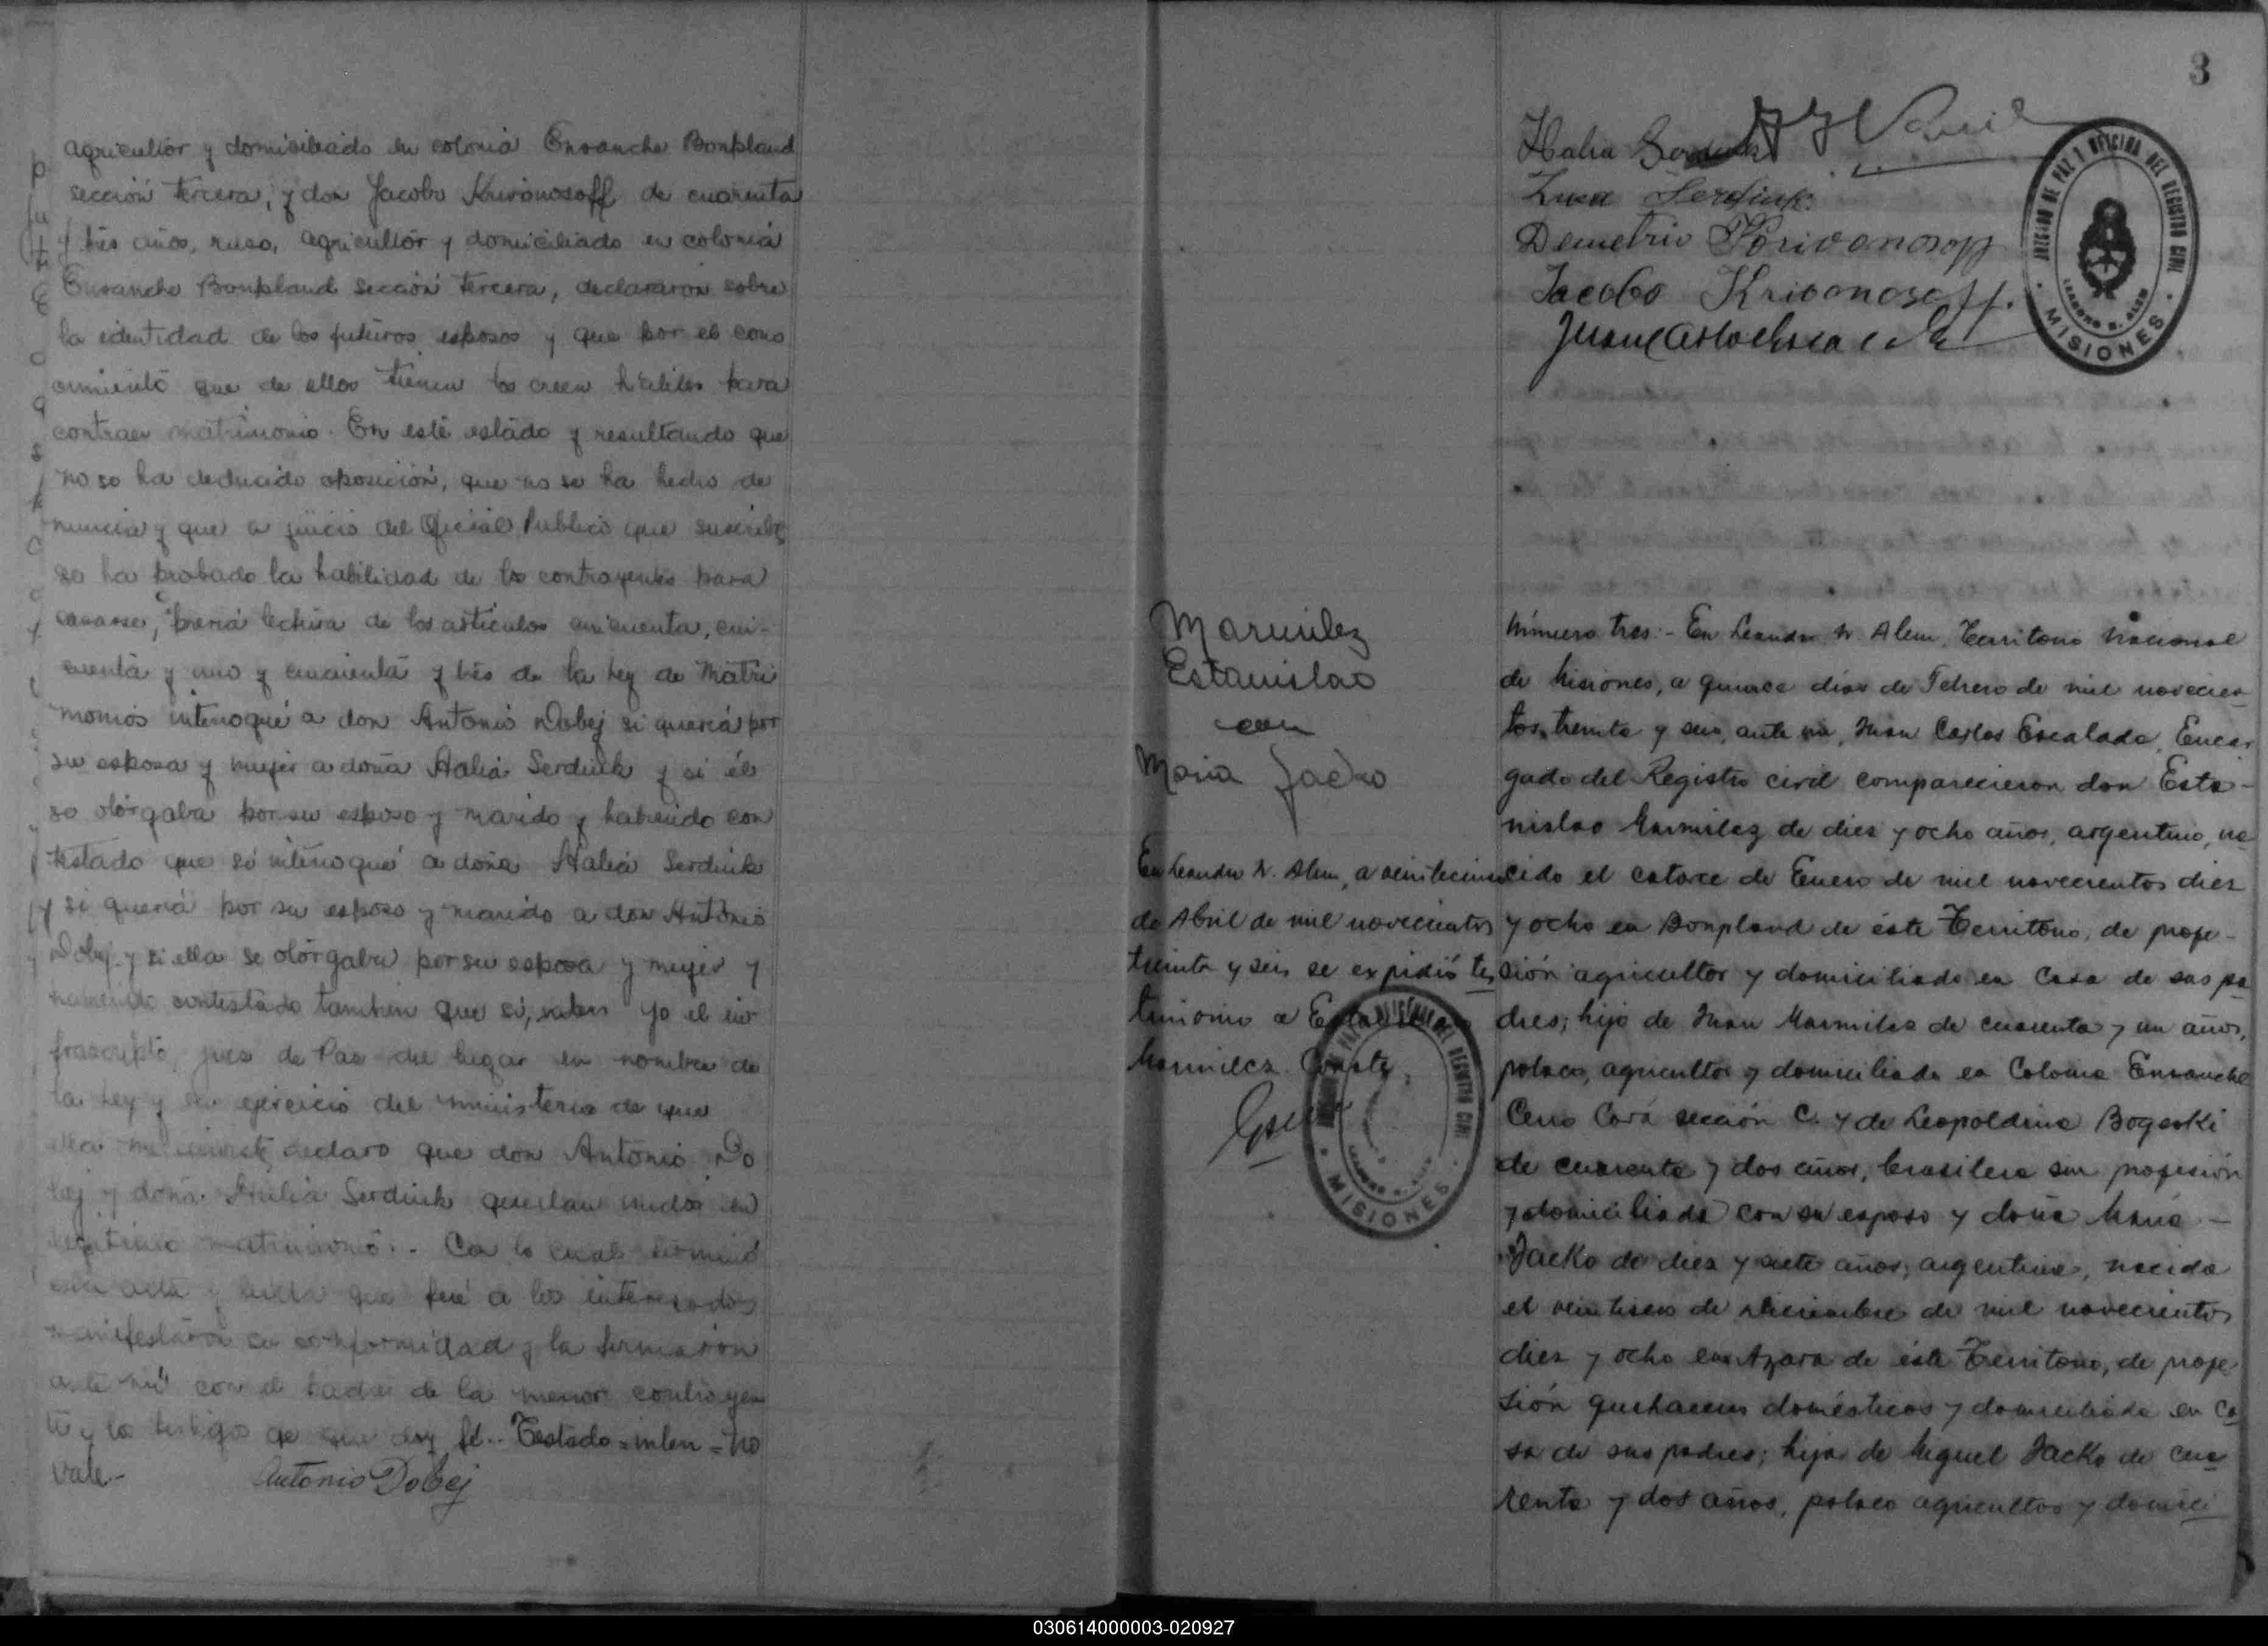 agricultor y domiciliado en colonia Ensanche Bonpland
sección tercera, y don Jacobo Krivonosoff de cuarenta
y trés años, ruso, agricultor y domiciliado en colonia
Ensanche Bonpland sección tercera, declararon sobre
la identidad de los futuros esposos y que por el cono
cimiento que de ellos tienen los creen habiles para
contraer matrimonio. En este estado y resultando que
no se ha deducido oposición, que no se ha hecho de
nuncia y que a juicio del Oficial Publico que suscribe
se ha probado la habilidad de los contrayentes para
casarse, previa lectura de los artículos cincuenta, cin-
cuenta y uno y cincuenta y trés de la Ley de Matri
monios interroqué a don Antonio Dobej si quería por
su esposa y mujer a doña Halia Serdiuk y si él
se otorgaba por su esposo y marido y habiendo con
testado que sí interroqué a doña Halia Serdiuk
si quería por su esposo y marido a don Antonio
Dobej y si ella se otorgaba por su esposa y mujer y
habiendo contestado tambien que sí, Yo el in
frascripto, juez de Paz del lugar en nombre de
la Ley y en ejercicio del ministerio de que
ella me inviste, declaro que don Antonio Do
bej y doña Halia Serdiuk quedan unidos en
legitimo matrimonio.- Con lo cual terminó
esta acta y leida que fué a los interesados
manifestaron su conformidad y la firmaron
ante mí con el padre de la menor contrayen
te y los testigos de que doy fé.- Testado = = no
vale.-
Antonio Dobej
3
Halia Serdiuk
Serdiuk
Demetrio Krivonosoff
Jacobo Krivonosoff.
Juan Carlos Escalada
JUZGADO DE PAZ Y OFICINA DEL REGISTRO CIVIL
LEANDRO N. ALEM
MISIONES
Marmilez
Estanislao
con
Maria Jacko
En Leandro N. Alem, a veinticinco
de Abril de mil novecientos
treinta y seis se expidió tes
timonio a Estanislao
Marmilez. Conste.
OFICINA DEL REGISTRO CIVIL
MISIONES
Número tres:- En Leandro N. Alem, Territorio Nacional
de Misiones, a quince días de Febrero de mil novecien
tos treinta y seis, ante mi, Juan Carlos Escalada, Encar
gado del Registro civil comparecieron don Esta-
nislao Marmilez de diez y ocho años, argentino, na
cido el catorce de Enero de mil novecientos diez
y ocho en Bonpland de éste Territorio, de profe-
sión agricultor y domiciliado en casa de sus pa
dres; hijo de Juan Marmilez de cuarenta y un años,
polaco, agricultor y domiciliado en Colonia Ensanche
Cerro Corá sección C. y de Leopoldina Bogaski
de cuarenta y dos años, brasilera sin profesión
y domiciliada con su esposo y doña María -
Jacko de diez y siete años, argentina, nacida
el veintiseis de Diciembre de mil novecientos
diez y ocho en Azara de éste Territorio, de profe
sión quehaceres domésticos y domiciliada en ca
sa de sus padres; hija de Miguel Jacko de cua
renta y dos años, polaco agricultor y domici
030614000003-020927